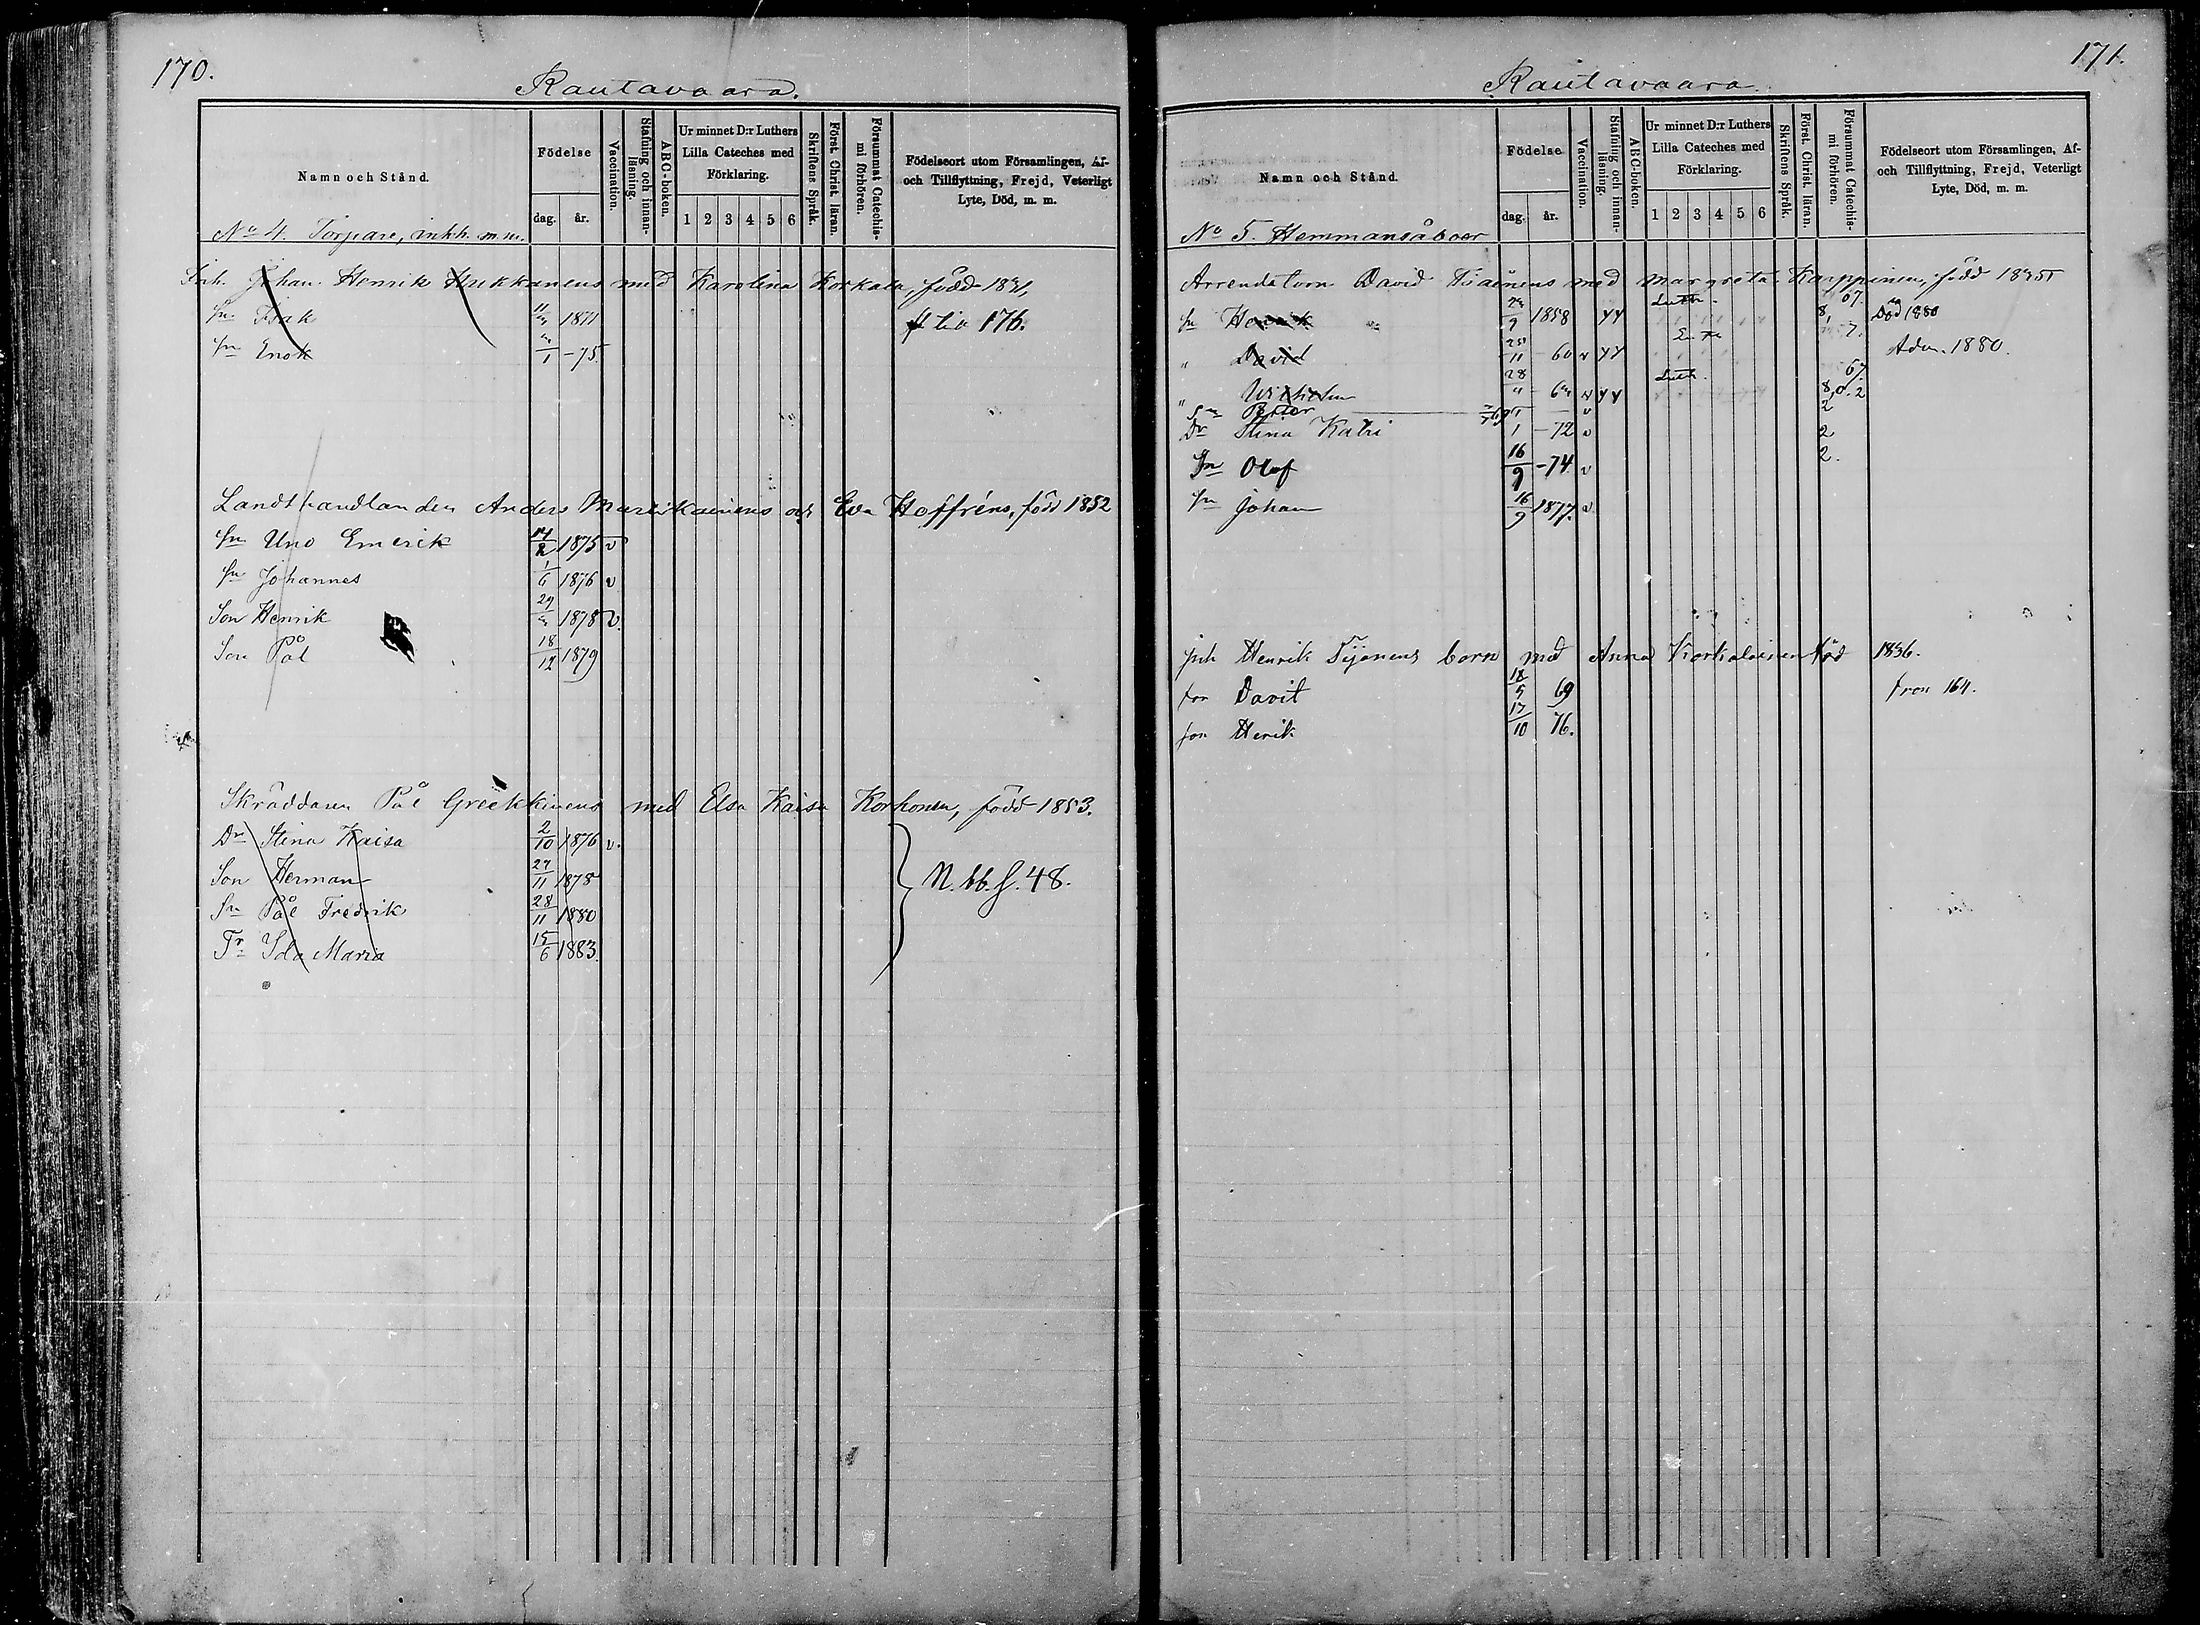 170.
Rautavaara.
Namn och Stånd.
Födelse
dag. år.
Vaccination.
Stafning och innan-
läsning.
ABC-boken.
Ur minnet D:r Luthers
Lilla Cateches med
Förklaring.
1 2 3 4 5 6
Skriftens Språk.
Först. Christ. läran.
Försummat Catechis-
mi förhören.
Födelseort utom Församlingen, Af-
och Tillflyttning, Frejd, Veterligt
Lyte, Död, m. m.
No 4. Torpare, inhh. m.m.
Inh. Johan Henrik Hukkanens med Karolina Korkala, född 1841,
Sn Isak 1871 176.
Sn Enok 1 -75.
Landthandlanden Anders och Eva Hoffréns, född 1852
Sn Uno Emerik 1875 v
Sn Johannes 1/6 1876 v
Son Henrik 29 1878 v.
Son Pål 18/12 1879
Skräddaren Pål Greekkinens med Elsa Kaisa Korhonen, född 1853.
Dr Stina Kaisa 2/10 1876 v.
Son Herman 27/11 1878
Sn Pål Fredrik 28/11 1880
Tr Ida Maria 15/6 1883.
N. bb. S. 48.
171.
Rautavaara.
Namn och Stånd.
Födelse
dag. år.
Vaccination.
Stafning och innan-
läsning.
ABC-boken.
Ur minnet D:r Luthers
Lilla Cateches med
Förklaring.
1 2 3 4 5 6
Skriftens Språk.
Först. Christ. läran.
Försummat Catechis-
mi förhören.
Födelseort utom Församlingen, Af-
och Tillflyttning, Frejd, Veterligt
Lyte, Död, m. m.
No 5. Hemmansåboer
Arrendatorn David med Margreta Karppinen, född 1835
Sn Henrik 1858 Död 1880
" David 25/11 60 Adm. 1880.
" Wilhelm 28
Sn Petter
Dr Stina Katri 1 -72 v 2
Sn Olof 16/9 -74 v 2.
Sn Johan 16/9 1877. v
Inh Henrik Tijonens barn med Anna Korkalainen född 1836.
son Davit 18/5 69 från 164.
son Henrik 17/10 76.